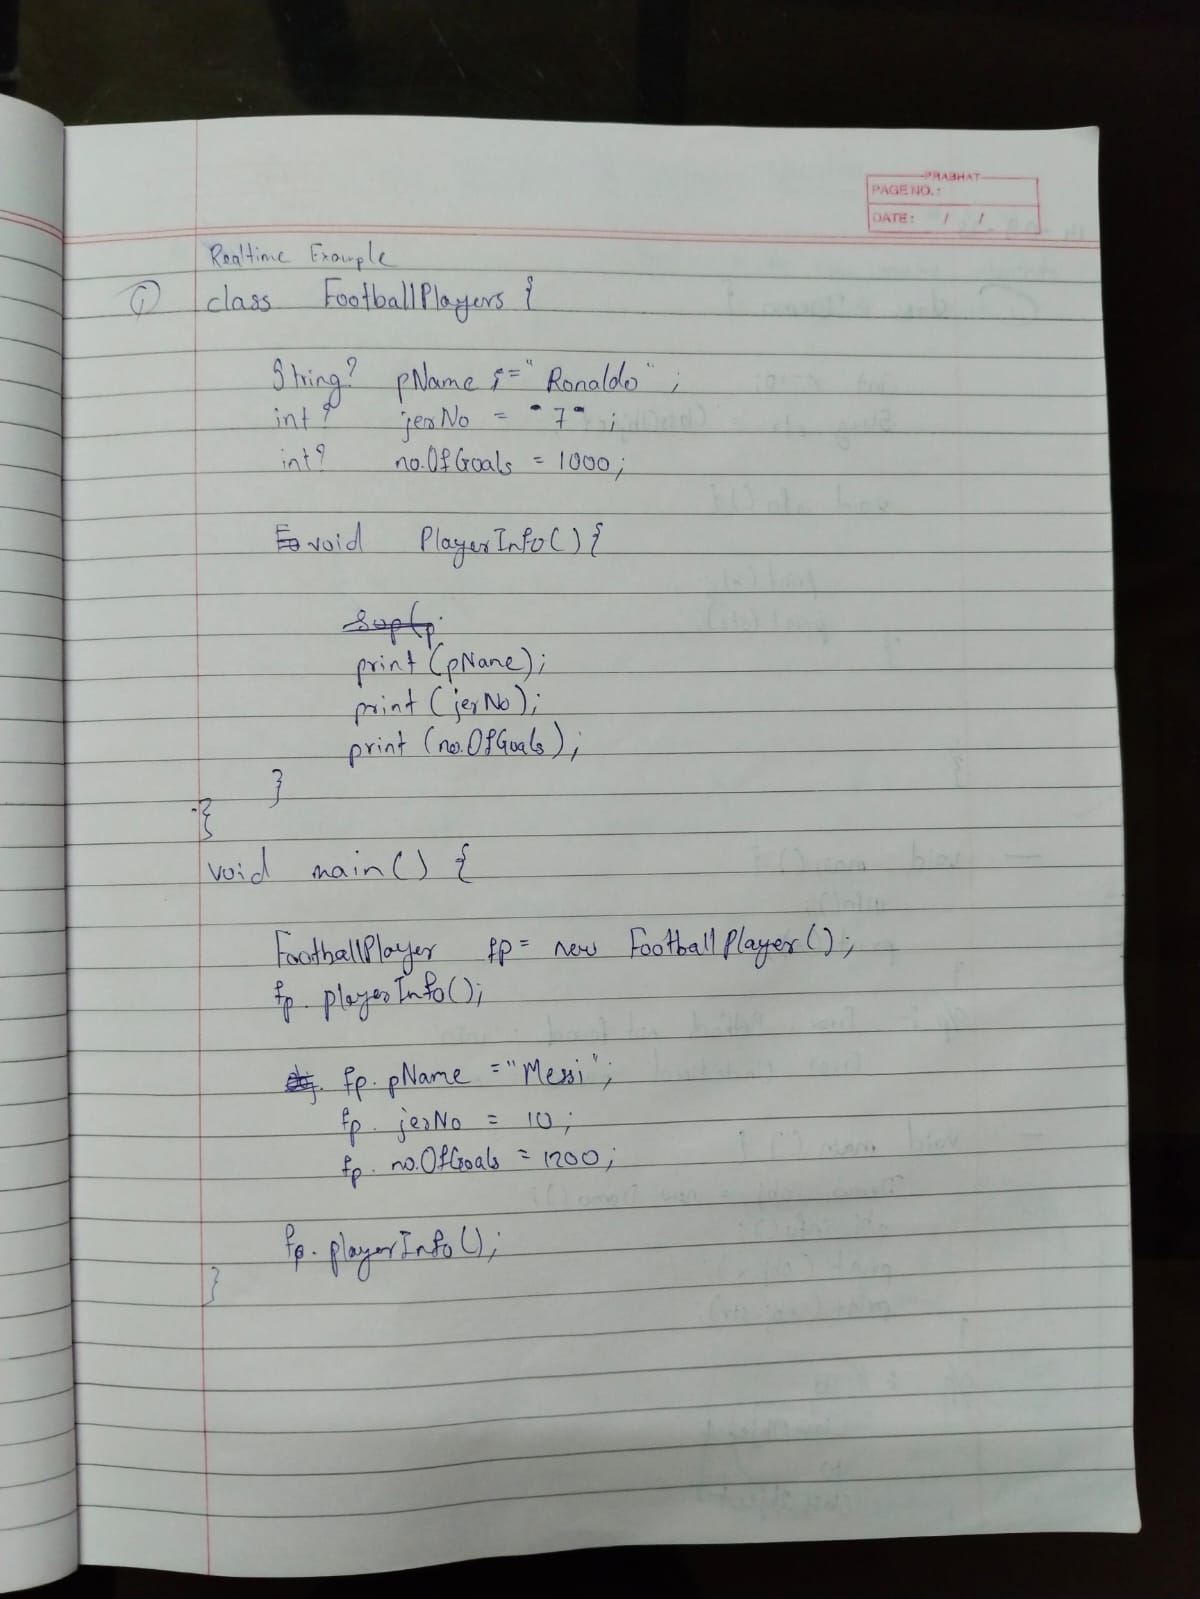 PRABHAT
PAGE NO.:
DATE: / /
Realtime Example
① class FootballPlayers {
String? pName = "Ronaldo" ;
int? jerNo = "7" ;
int? no.OfGoals = 1000;
void PlayerInfo() {
sop(p.
print (pName);
print (jerNo);
print (no.OfGoals);
}
}
void main() {
FootballPlayer fp = new FootballPlayer();
fp. playerInfo();
fp. pName = "Messi";
fp. jerNo = 10;
fp. no.OfGoals = 1200;
fp. playerInfo();
}